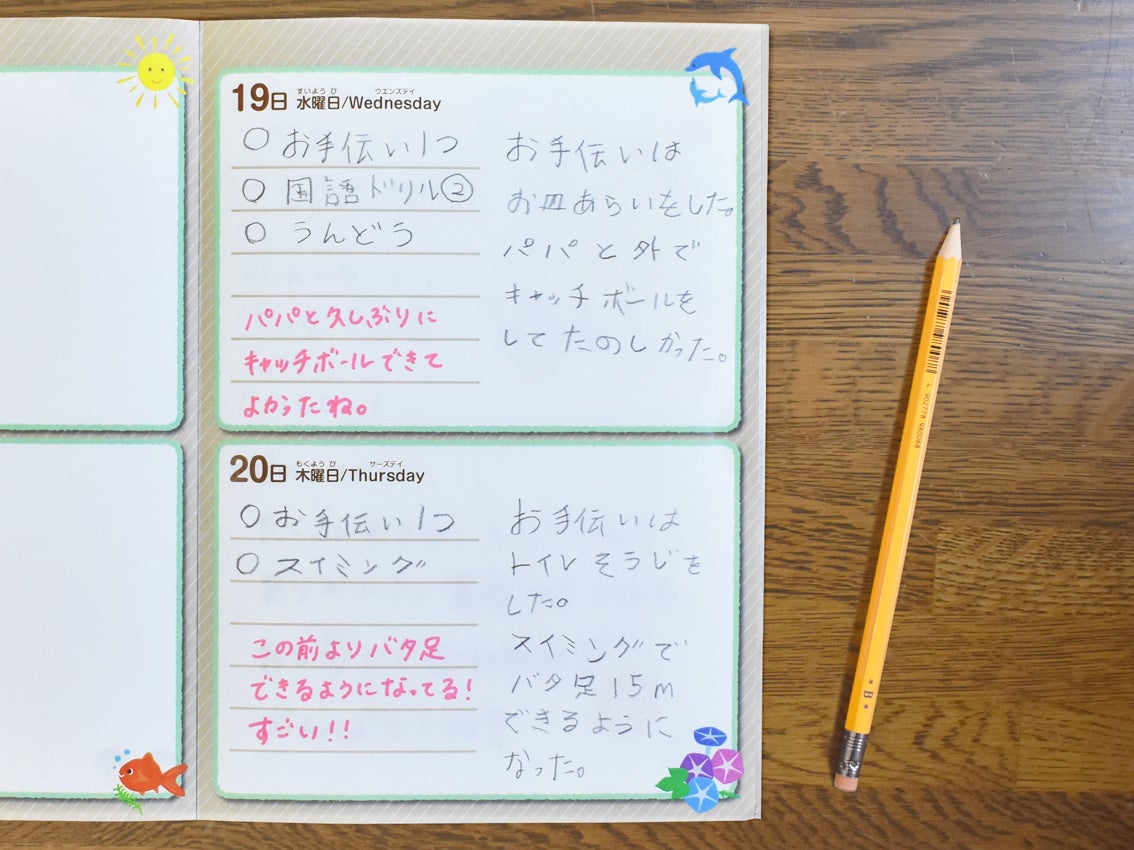 19日 水曜日/Wednesday
すいようび ウエンズデイ
○ お手伝い1つ
○ 国語ドリル②
○ うんどう
パパと久しぶりに
キャッチボールできて
よかったね。
お手伝いは
お皿あらいをした。
パパと外で
キャッチボールを
してたのしかった。
20日 木曜日/Thursday
もくようび サーズデイ
○ お手伝い1つ
○ スイミング
この前よりバタ足
できるようになってる!
すごい!!
お手伝いは
トイレそうじを
した。
スイミングで
バタ足15m
できるように
なった。
4 902778 980088
* B *